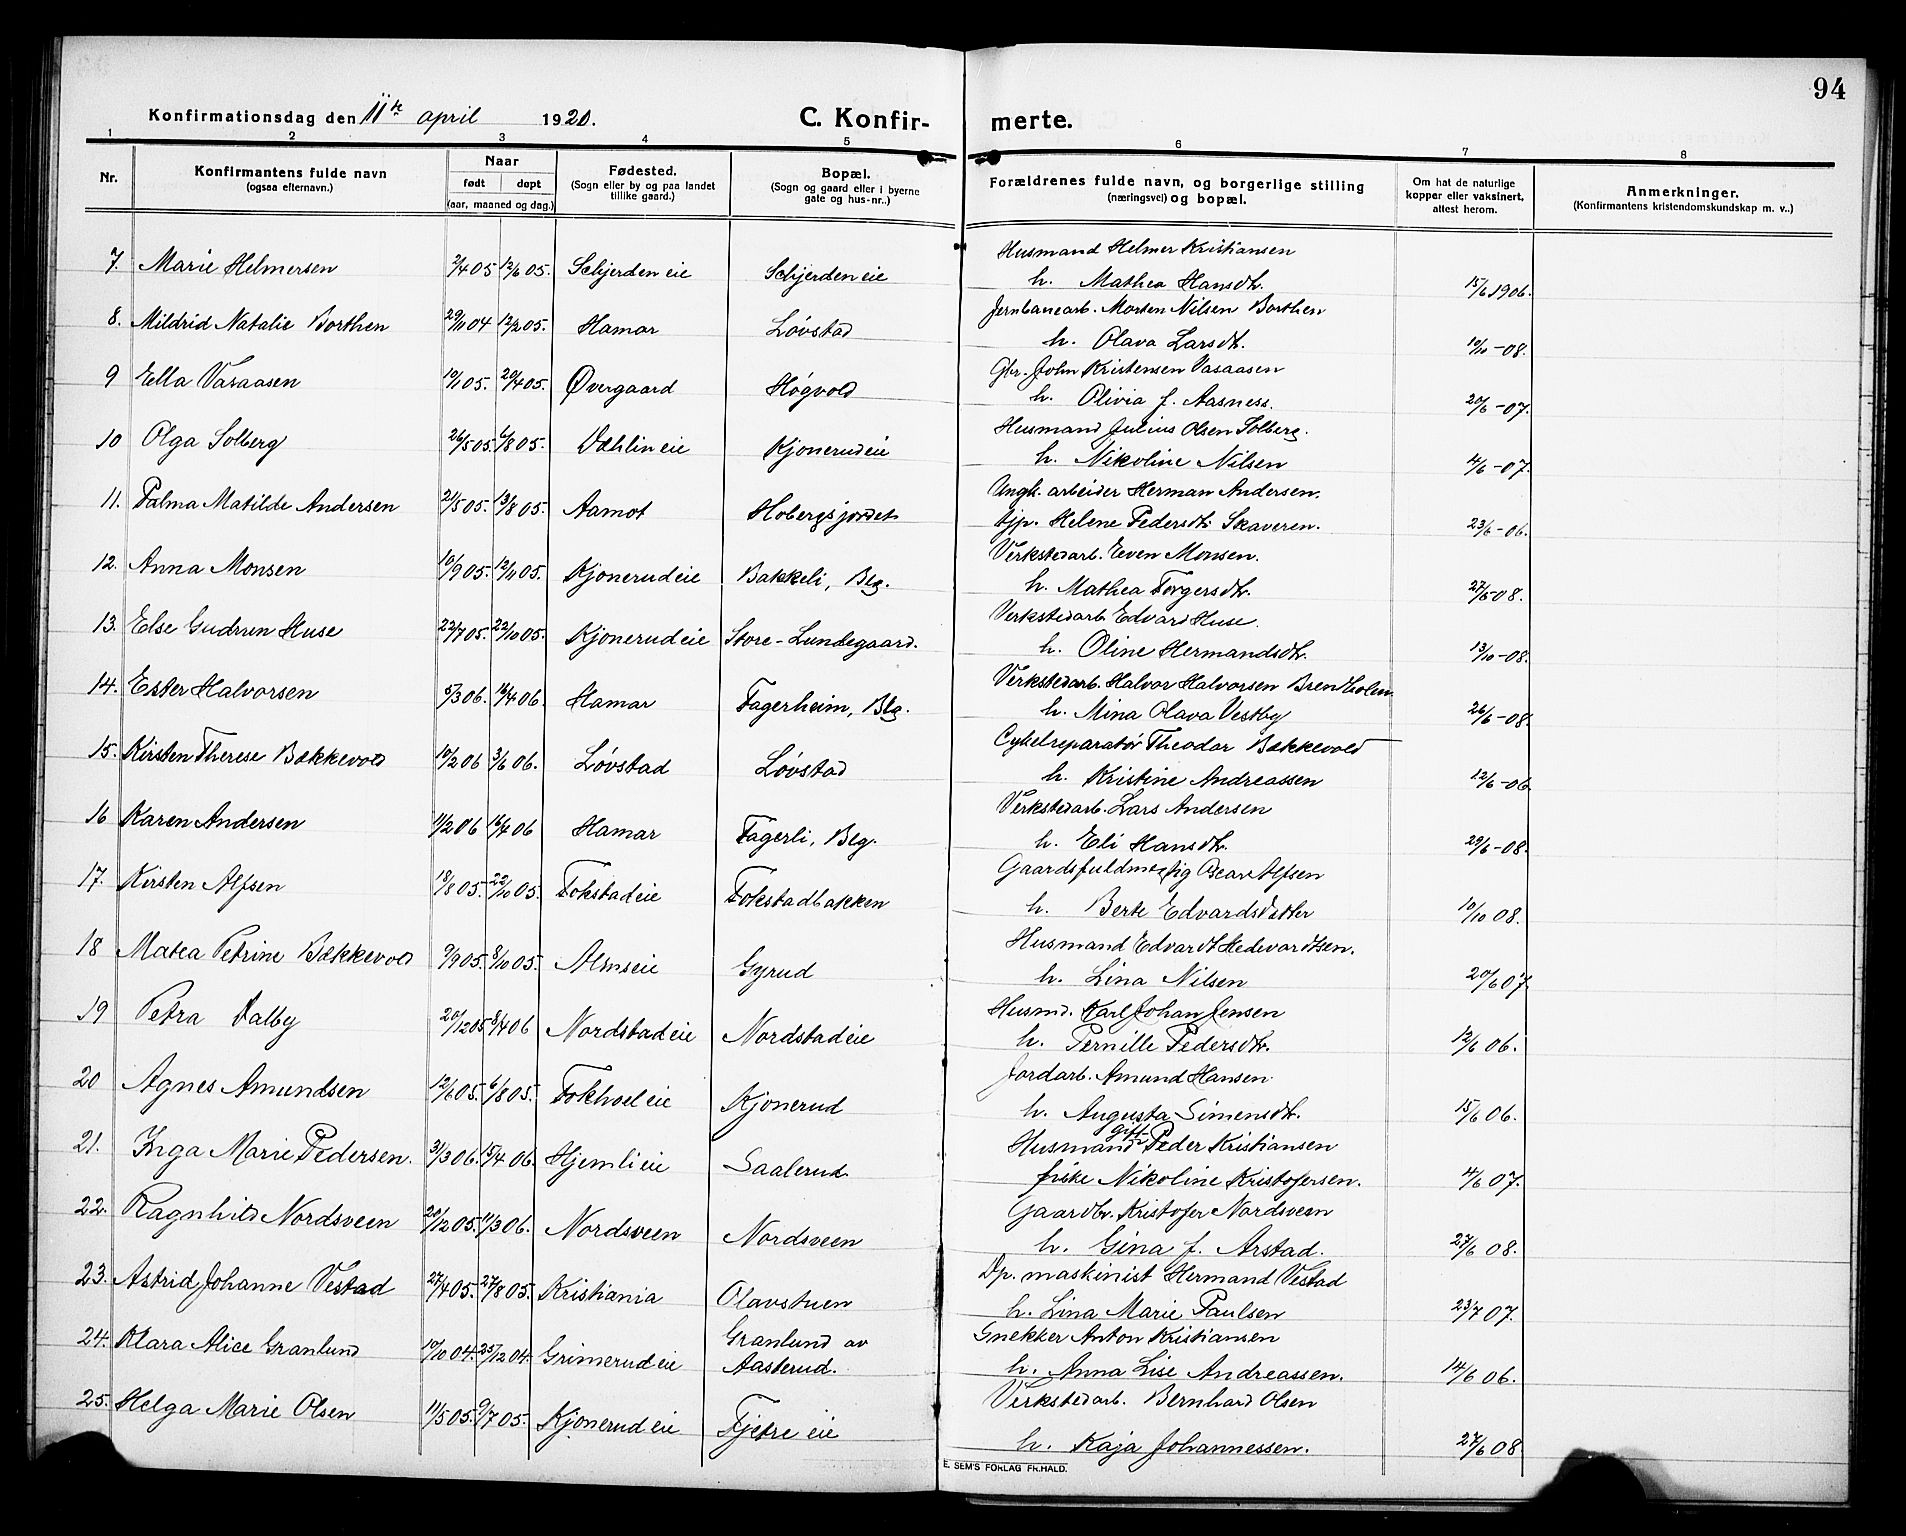 94
Konfirmationsdag den 11te april 1920. C. Konfir- merte.
1 2 3 4 5 6 7 8
Nr. Konfirmantens fulde navn (ogsaa efternavn.) Naar født døpt (aar, maaned og dag.) Fødested. (Sogn eller by og paa landet tillike gaard.) Bopæl. (Sogn og gaard eller i byerne gate og hus-nr..) Forældrenes fulde navn, og borgerlige stilling (næringsvei) og bopæl. Om hat de naturlige kopper eller vaksinert, attest herom. Anmerkninger. (Konfirmantens kristendomskundskap m. v..)
7. Marie Helmersen 2/4 05 12/6 05. Schjerden eie Schjerden eie Husmand Helmer Kristiansen
h. Mathea Hansdtr. 15/6 1906.
8. Mildrid Natalie Borthen 29/11 04 12/2 05. Hamar Løvstad Jernbanearb. Morten Nilsen Borthen
h. Olava Larsdtr. 10/10-08.
9 Ella Vasaasen 19/1 05. 20/4 05. Øvergaard Høgvold Gbr. John Kristensen Vasaasen
h. Olivia f. Aasness. 20/6-07.
10 Olga Solberg 26/5 05. 6/8 05. Dæhlin eie Kjonerudeie Husmand Julius Olsen Solberg.
h. Nikoline Nilsen 4/6-07.
11. Palma Matilde Andersen 21/5 05. 13/8 05. Aamot Hobergsjordet Ungk. arbeider Herman Andersen.
tjp. Helene Pedersdtr. Skaveren. 23/6-06.
12. Anna Monsen 10/9 05. 12/11 05. Kjonerud eie Bakkeli, Blg. Verkstedarb. Even Monsen.
h. Mathea Torgersdtr. 27/6-08.
13. Else Gudrun Huse 22/7 05. 22/10 05. Kjonerud eie Store-Lundegaard. Verkstedarb Edvard Huse.
h. Oline Hermandsdtr. 13/10-08.
14. Ester Halvorsen 5/3 06. 16/4 06. Hamar Fagerheim, Blg. Verkstedarb. Halvor Halvorsen Brendholen
h. Mina Olava Vestby 26/6-08.
15. Kirsten Therese Bækkevold 10/2 06 3/6 06. Løvstad Løvstad Cykelreparatør Theodor Bækkevold
h. Kristine Andreassen 12/6-06.
16 Karen Andersen 11/2 06 16/4 06 Hamar Fagerli, Blg. Verkstedarb. Lars Andersen
h. Eli Hansdtr. 29/6-08.
17. Kirsten Alfsen 18/8 05. 22/10 05. Fokstad eie Fokstadbakken Gaardsfuldmægtig Oscar Alfsen
h. Berte Edvardsdatter 10/10 08.
18 Matea Petrine Bækkevold 9/9 05. 8/10 05. Alms eie Gyrud Husmand Edvardt Hedevardtsen.
h. Lina Nilsen 20/6 07.
19 Petra Dalby 20/12 05 8/4 06 Nordstad eie Nordstad eie Husmd. Karl Johan Jensen
h. Pernille Pedersdtr. 12/6 06.
20 Agnes Amundsen 12/6 05. 6/8 05. Fokhol eie Kjonerud Jordarb. Amund Hansen
h. Augusta Simensdtr. 15/6 06.
21. Inga Marie Pedersen. 31/3 06. 15/4 06. Hjemli eie Saalerud Husmand gift Peder Kristiansen
frske Nikoline Kristofersen. 4/6 07.
22. Ragnhild Nordsveen 20/12 05. 11/3 06. Nordsveen Nordsveen Gaardbr. Kristofer Nordsveen
h. Gina f. Arstad. 27/6 08.
23. Astrid Johanne Vestad 27/4 05. 27/8 05. Kristiania Olavstuen Dp. maskinist Hermand Vestad
h. Lina Marie Paulsen 23/7 07.
24. Klara Alice Granlund 10/10 04. 25/12 04. Grimerud eie Granlund av Aasterud. Snekker Anton Kristiansen
h. Anna Lise Andreassen. 14/6 06.
25. Helga Marie Olsen 11/5 05. 9/7 05. Kjonerud eie Tjetre eie Verkstedarb. Bernhard Olsen
h. Kaja Johannessen. 27/6 08
E. SEM'S FORLAG FR.HALD.